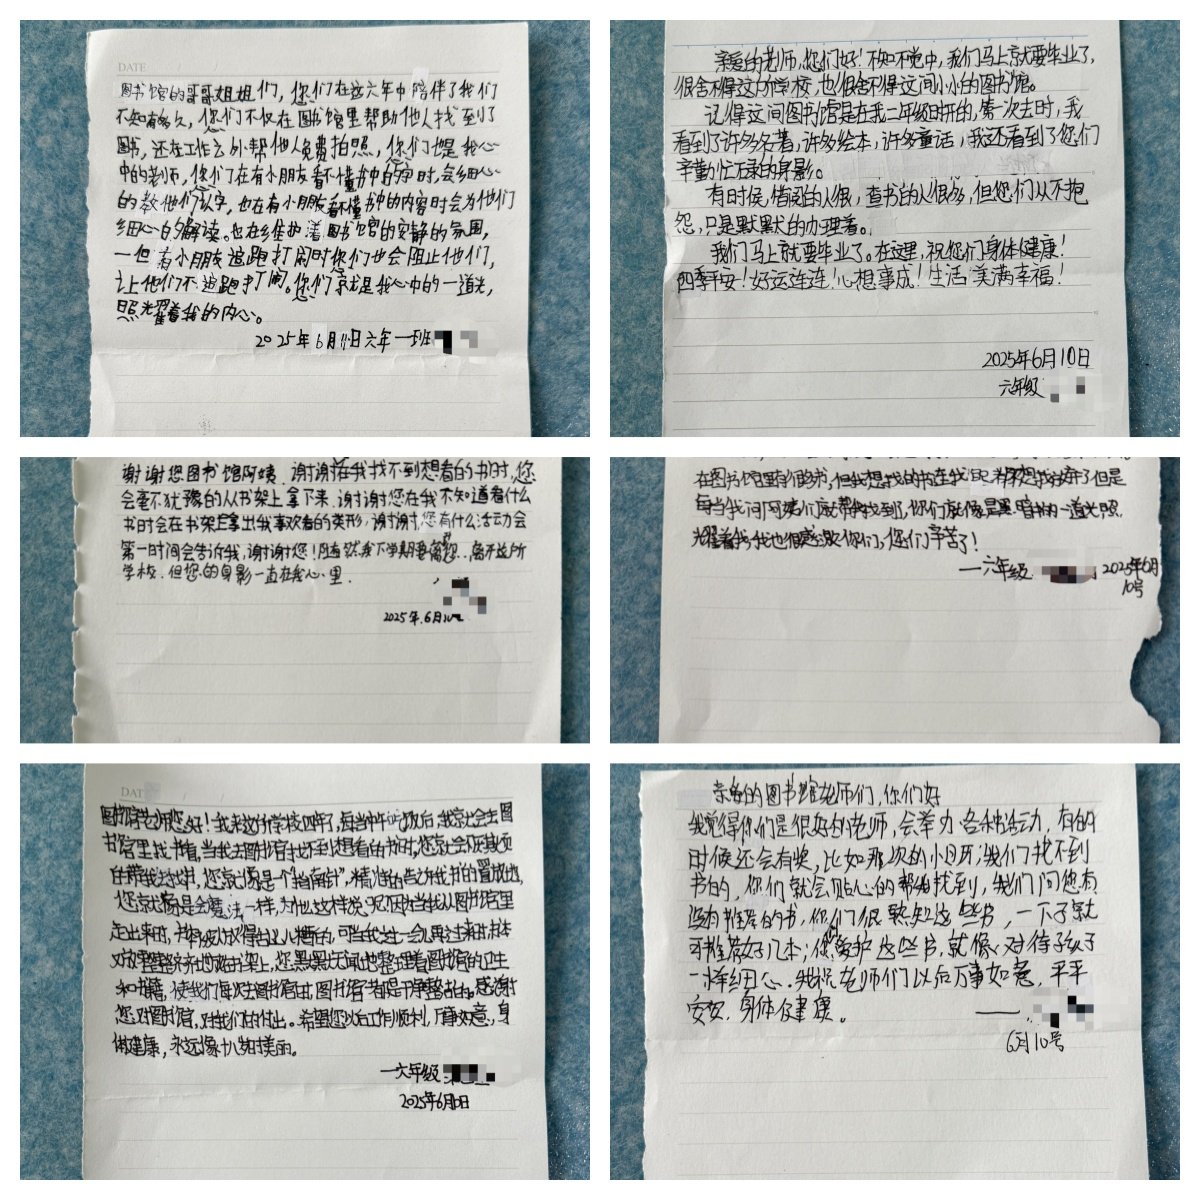 DATE
图书馆的哥哥姐姐们，您们在这六年中陪伴了我们
不知有多久，您们不仅在图书馆里帮助他人找到了
图书，还在工作之外帮他人免费拍照，您们也是我心
中的老师，您们在有小朋友看不懂书中的字时，会细心
的教他们认字，也在有小朋友看不懂书中的内容时会为他们
细心的解读。也在维护着图书馆的安静的氛围，
一但有小朋友追跑打闹时你们也会阻止他们，
让他们不追跑打闹。您们就是我心中的一道光，
照耀着我的内心。
2025年6月11日六年一班
亲爱的老师，您们好！不知不觉中，我们马上就要毕业了，
很舍不得这所学校，也很舍不得这间小小的图书馆。
记得这间图书馆是在我二年级时开的，第一次去时，我
看到了许多名著，许多绘本，许多童话，我还看到了您们
辛勤忙碌的身影。
有时候，借阅的人很，查书的人很多，但您们从不抱
怨，只是默默的办理着。
我们马上就要毕业了。在这里，祝您们身体健康！
四季平安！好运连连！心想事成！生活美满幸福！
2025年6月10日
六年级
谢谢您图书馆阿姨，谢谢在我找不到想看的书时，您
会毫不犹豫的从书架上拿下来，谢谢您在我不知道看什么
书时会在书架上拿出我喜欢看的类形，谢谢您有什么活动会
第一时间会告诉我，谢谢您！虽然我下学期要离您、离开这所
学校，但您的身影一直在我心里.
2025年.6月10
在图书馆里有很多书，但我想找的书连我 但是
每当我问阿姨们就帮我找到了你们就像是黑暗中的一道光照
耀着我，我也很感激你们，您们辛苦了！
一六年级 2025年6月
10号
DAT
图书馆老师您好！我来这所学校四年了，每当中午吃饭后，我就会去图
书馆里找书看，当我去图书馆找不到想看的书时，您就会
带我去找书，您就像是个“指南针”，精准的告诉我书的置放地，
您就像是会魔法一样，为什么这样说呢？因为当我从图书馆里
走出来时，书被放得台上儿糟的，可当我过一会儿再过来时书本
又被整整齐齐地放在书架上，您默默无闻地整理着图书馆的卫生
和书籍，使我们每次去图书馆时，图书馆都是干净整洁的。感谢
您对图书馆，对我们的付出。希望您以后工作顺利，万事如意，身
体健康，永远像十八岁一样美丽。
一六年级
2025年6月10日
亲爱的图书馆老师们，你们好
我觉得你们是很好的老师，会举力各种活动，有的
时候还会有奖，比如那次的小日历；我们找不到
书时，你们就会贴心的帮他找到，我们问您有
没有推荐的书，你们很熟知这些书，一下子就
可推荐好几本；你爱护这些书，就像对待孩子
一样细心。我祝老师们以后万事如意，平平
安安，身体健康。
——
6月10号